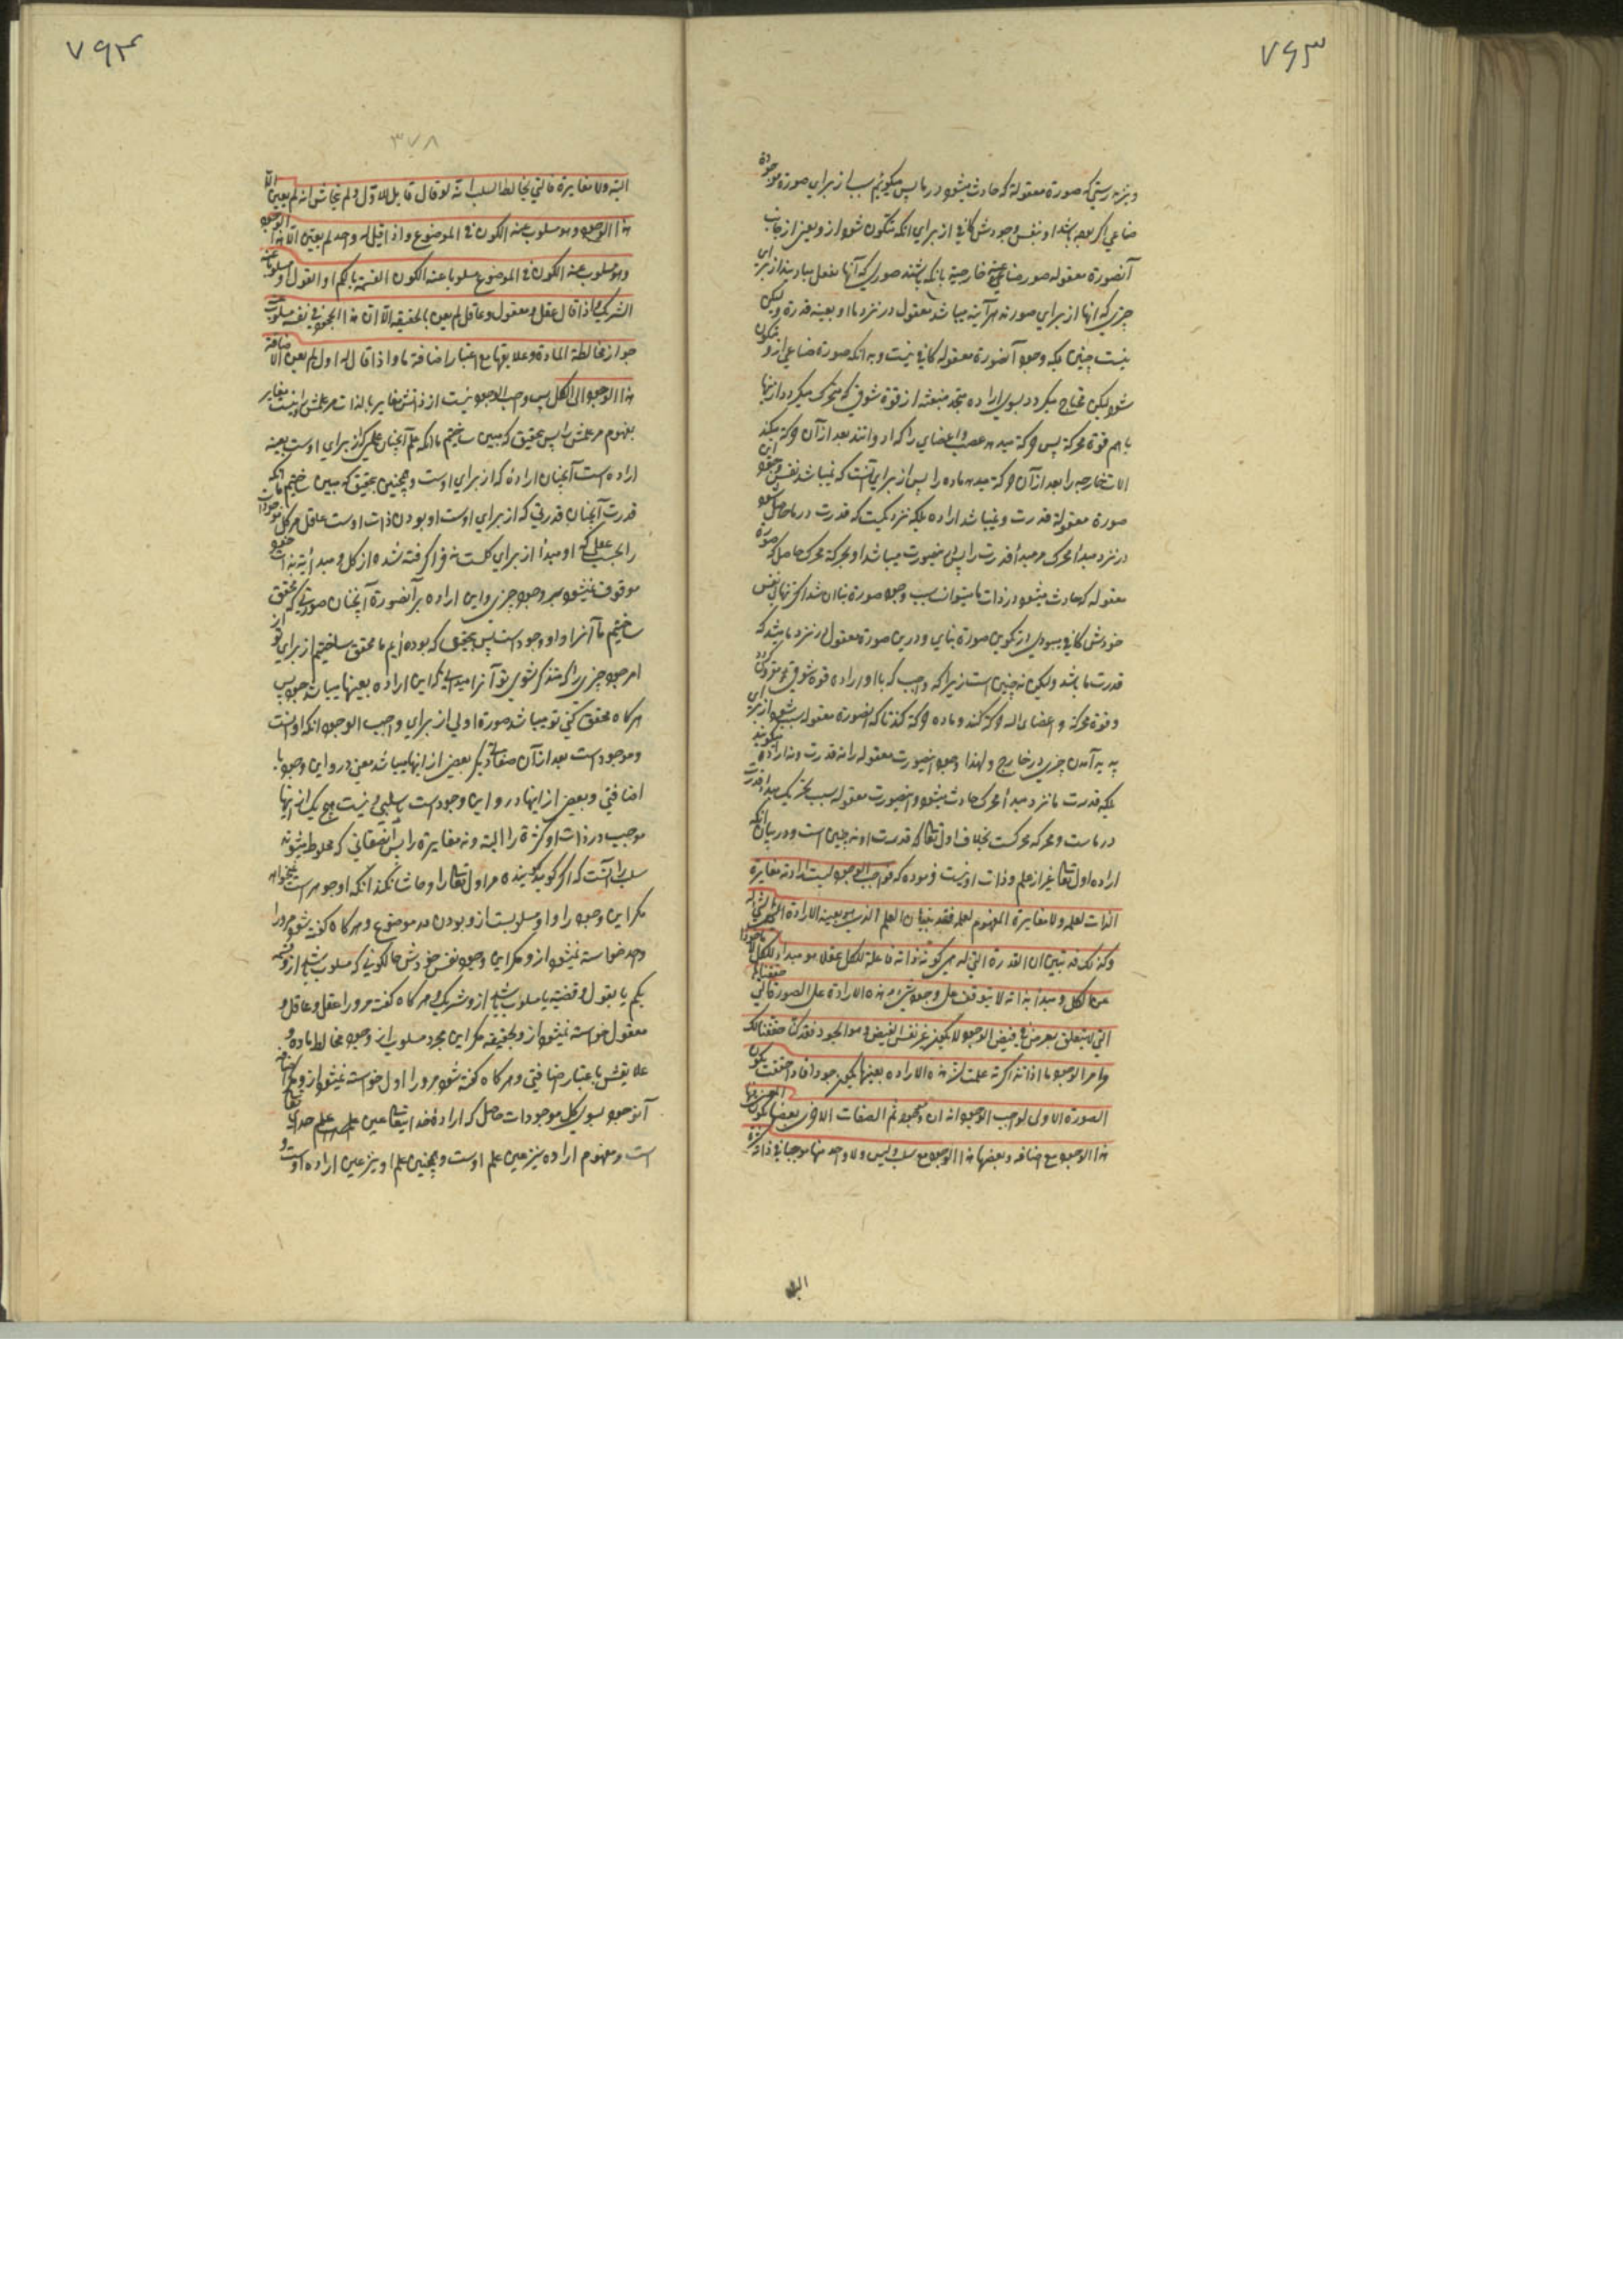 ۷۶۳
و نیز بدرستی که صورة معقولة که حادث میشود در ما پس میکوئیم سبب از برای صورة موجودة
صناعی اکر بوجه باشد او بنفس وجودش کافی از برای آنکه متکون شود از و یعنی از جانب
آنصورة معقوله صور صناعی خارجیة بانکه باشند صوری که آنها بفعل مبادیند از برای
چیزی که آنها از برای صورند هر آینه میباشد معقول در نزد ما او بعینه قدرة و لیکن
نیست چنین بلکه وجود آنصورة معقوله کافی نیست و به آنکه صورة صناعی از و متکون
شود لیکن محتاج میکردد بسوی اراده متجدد منبعثه از قوة شوقی که متحرک میکردد از اینها
با هم قوة محرکه پس حرکة میدهد عصب و اعضای را که ادواتند بعد از آن حرکة میکند
الات خارجیه را بعد از آن حرکة میدهد ماده را پس از برای آنست که نمیباشد نفس وجود این
صورة معقولة قدرت و نمیباشد اراده بلکه نزدیکست که قدرت در ما حاصل شود
در نزد مبدأ محرک و مبدأ قدرت را پس اینصورت میباشد او محرکة محرک حاصل که صورة
معقوله که حادث میشود در ذات ما میتواند سبب وجود صورة بنا آن شد اکر تنهائی نفس
خودش کافی میبودی از تکوین صورة بنایی و در این صورة معقوله در نزد ما میشد که
قدرت ما باشد و لیکن نه چنین است زیرا که واجب که باا و اراده قوة شوقی متوقدی کردد
و قوة محرکة و اعضای اله حرکة کنند و ماده حرکة کند تا که آنصورة معقوله سبب شود از برای
پدید آمدن چیزی در خارج و لهذا وجود اینصورت معقوله را نه قدرت و نه اراده میکویند
بلکه قدرت ما نزد مبدأ محرک حادث میشود و اینصورت معقوله سبب تحریک مبدأ قدرت
در ماست و محرکه محرکست بخلاف اول تعالی که قدرت او نه چنین است و در بیان آنکه
اراده اول تعالی غیر از علم و ذات او نیست فرموده که فواجب الوجود لیست ارادته مغایرة
الذات لعلمه و لا مغایرة المفهوم لعلمه فقد بینا ان العلم الذی له بعینه الارادة التی له
و کذلک قد تبین ان القدرة التی له هی کون ذاته عاقلة للکل عقلا هو مبدأ للکل لا مأخوذا
عن الکل و مبدأ بذاته لا یتوقف علی وجود شیء و هذه الارادة علی الصورة التی حققناها
التی لا یتعلق بغرض فی فیض الوجود لا یکون غیر نفس الفیض و هو الجود فقد کنا حققنا لک
من امر الجود ما اذا تذکرته علمت ان هذه الارادة بعینها یکون جودا فاذا حققت یکون
الصورة الاولی لواجب الوجود انه ان و موجود ثم الصفات الاخری بعضها یکون المعنی فیها
هذا الوجود مع اضافة و بعضها هذا الوجود مع سلب و لیس و لا واحد منها موجبا فی ذاته کثرة
البتة
۷۶۴
۳۷۸
البتة و لا مغایرة فالتی یخالط السلب انه لو قال قایل للاول و لم یتحاش انه لم یعین الا
هذا الوجود و هو مسلوب عنه الکون فی الموضوع و اذا قیل له واحد لم یعین الا هذا الوجود
و هو مسلوب عنه الکون فی الموضوع مسلوبا عنه الکون القسمة بالکم او القول او مسلوبا عنه
الشریک و اذا قال عقل و معقول و عاقل لم یعین بالحقیقه الا ان هذا المجرد فی نفسه مسلوب عنه
جواز مخالطة المادة و علایقها مع اعتبار اضافة ما و اذا قال له اول لم یعین الا اضافة
هذا الوجود الی الکل پس واجب الوجود نیست از ذاتش مغایر بالذات مر علمش را و نیست مغایر
بمفهوم مر علمش را پس بتحقیق که مبین ساختیم ما انکه علم آنچنان علمی که از برای اوست بعینه
اراده است آنچنان اراده که از برای اوست و همچنین بتحقیق که مبین ساختیم ما انکه
قدرت آنچنان قدرتی که از برای اوست او بودن ذات اوست عاقل مر کل موجودات
را بحسب عقلی که او مبدأ از برای کلست نه فرا کرفته شده از کل و مبدأیة بذات خود
موقوف نمیشود بر وجود چیزی و این اراده بر آنصورة آنچنان صورتی که محقق
ساختیم ما آنرا و او وجود است پس بتحقیق که بوده ایم ما محقق ساختیم از برای تو از
امر جود چیزی را که متذکر شوی تو آنرا میدانی که این اراده بعینها میباشد جود پس
هر کاه محقق کنی تو میباشد صورة اولی از برای واجب الوجود انکه او انیت
و موجود است بعد از آن صفات دیکر بعضی از اینها میباشد معنی در و این وجود با
اضافتی و بعضی از اینها در و این وجود است با سلبی و نیست هیچ یک از اینها
موجب در ذات او کثرة را البته و نه مغایرة را پس انصفاتی که مخلوط میشود به
سلب آنست که اکر کوید کوینده مر اول تعالی را و حاشا نکند انکه او جوهر است نمیخواهد
مکر این وجود را و او مسلوبست از و بودن در موضوع و هر کاه کفته شود مر و را
واحد خواسته نمیشود از و مکر این وجود بنفس خودش حالکونی که مسلوب باشد از و قسمة
بکم یا بقول و قضیه یا مسلوب باشد از و شریک و هر کاه کفته مر و را عقل و عاقل و
معقول خواسته نمیشود از و بحقیقه مکر این مجرد مسلوب از و جواز مخالط ماده و
علایقش با عتبار اضافتی و هر کاه کفته شود مر و را اول خواسته نمیشود از و مکر اضافه
آنوجود بسوی کل موجودات حاصل که اراده خدا یتعالی عین علم خدای تعالی
است و مفهوم اراده نیز عین علم اوست و همچنین علم او نیز عین اراده اوست و